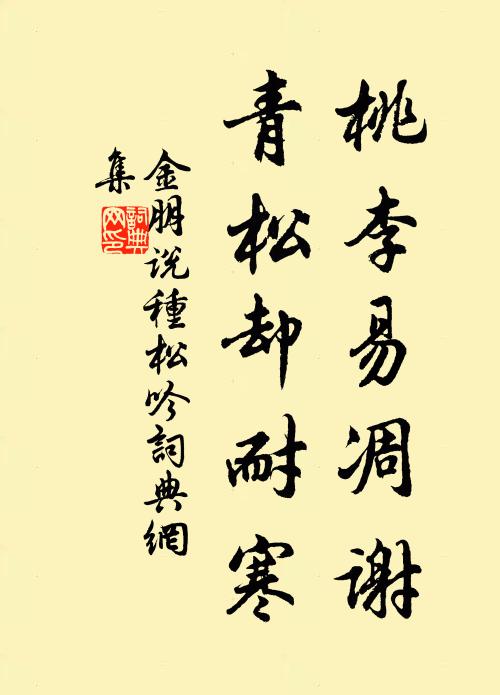 桃李易凋谢
青松却耐寒
金朋说種松吟詞典網
集
詞典网印